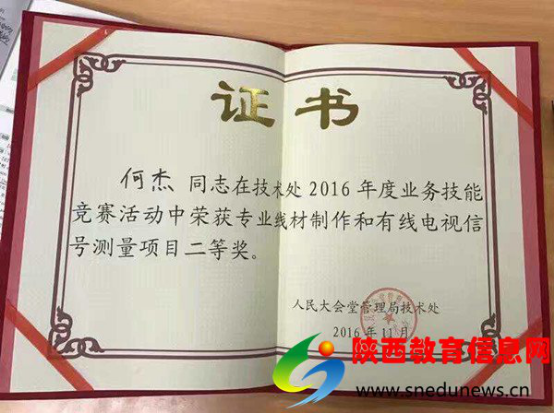 证书
何杰 同志在技术处2016年度业务技能
竞赛活动中荣获专业线材制作和有线电视信
号测量项目二等奖。
人民大会堂管理局技术处
2016年11月
陕西教育信息网
www.snedunews.cn